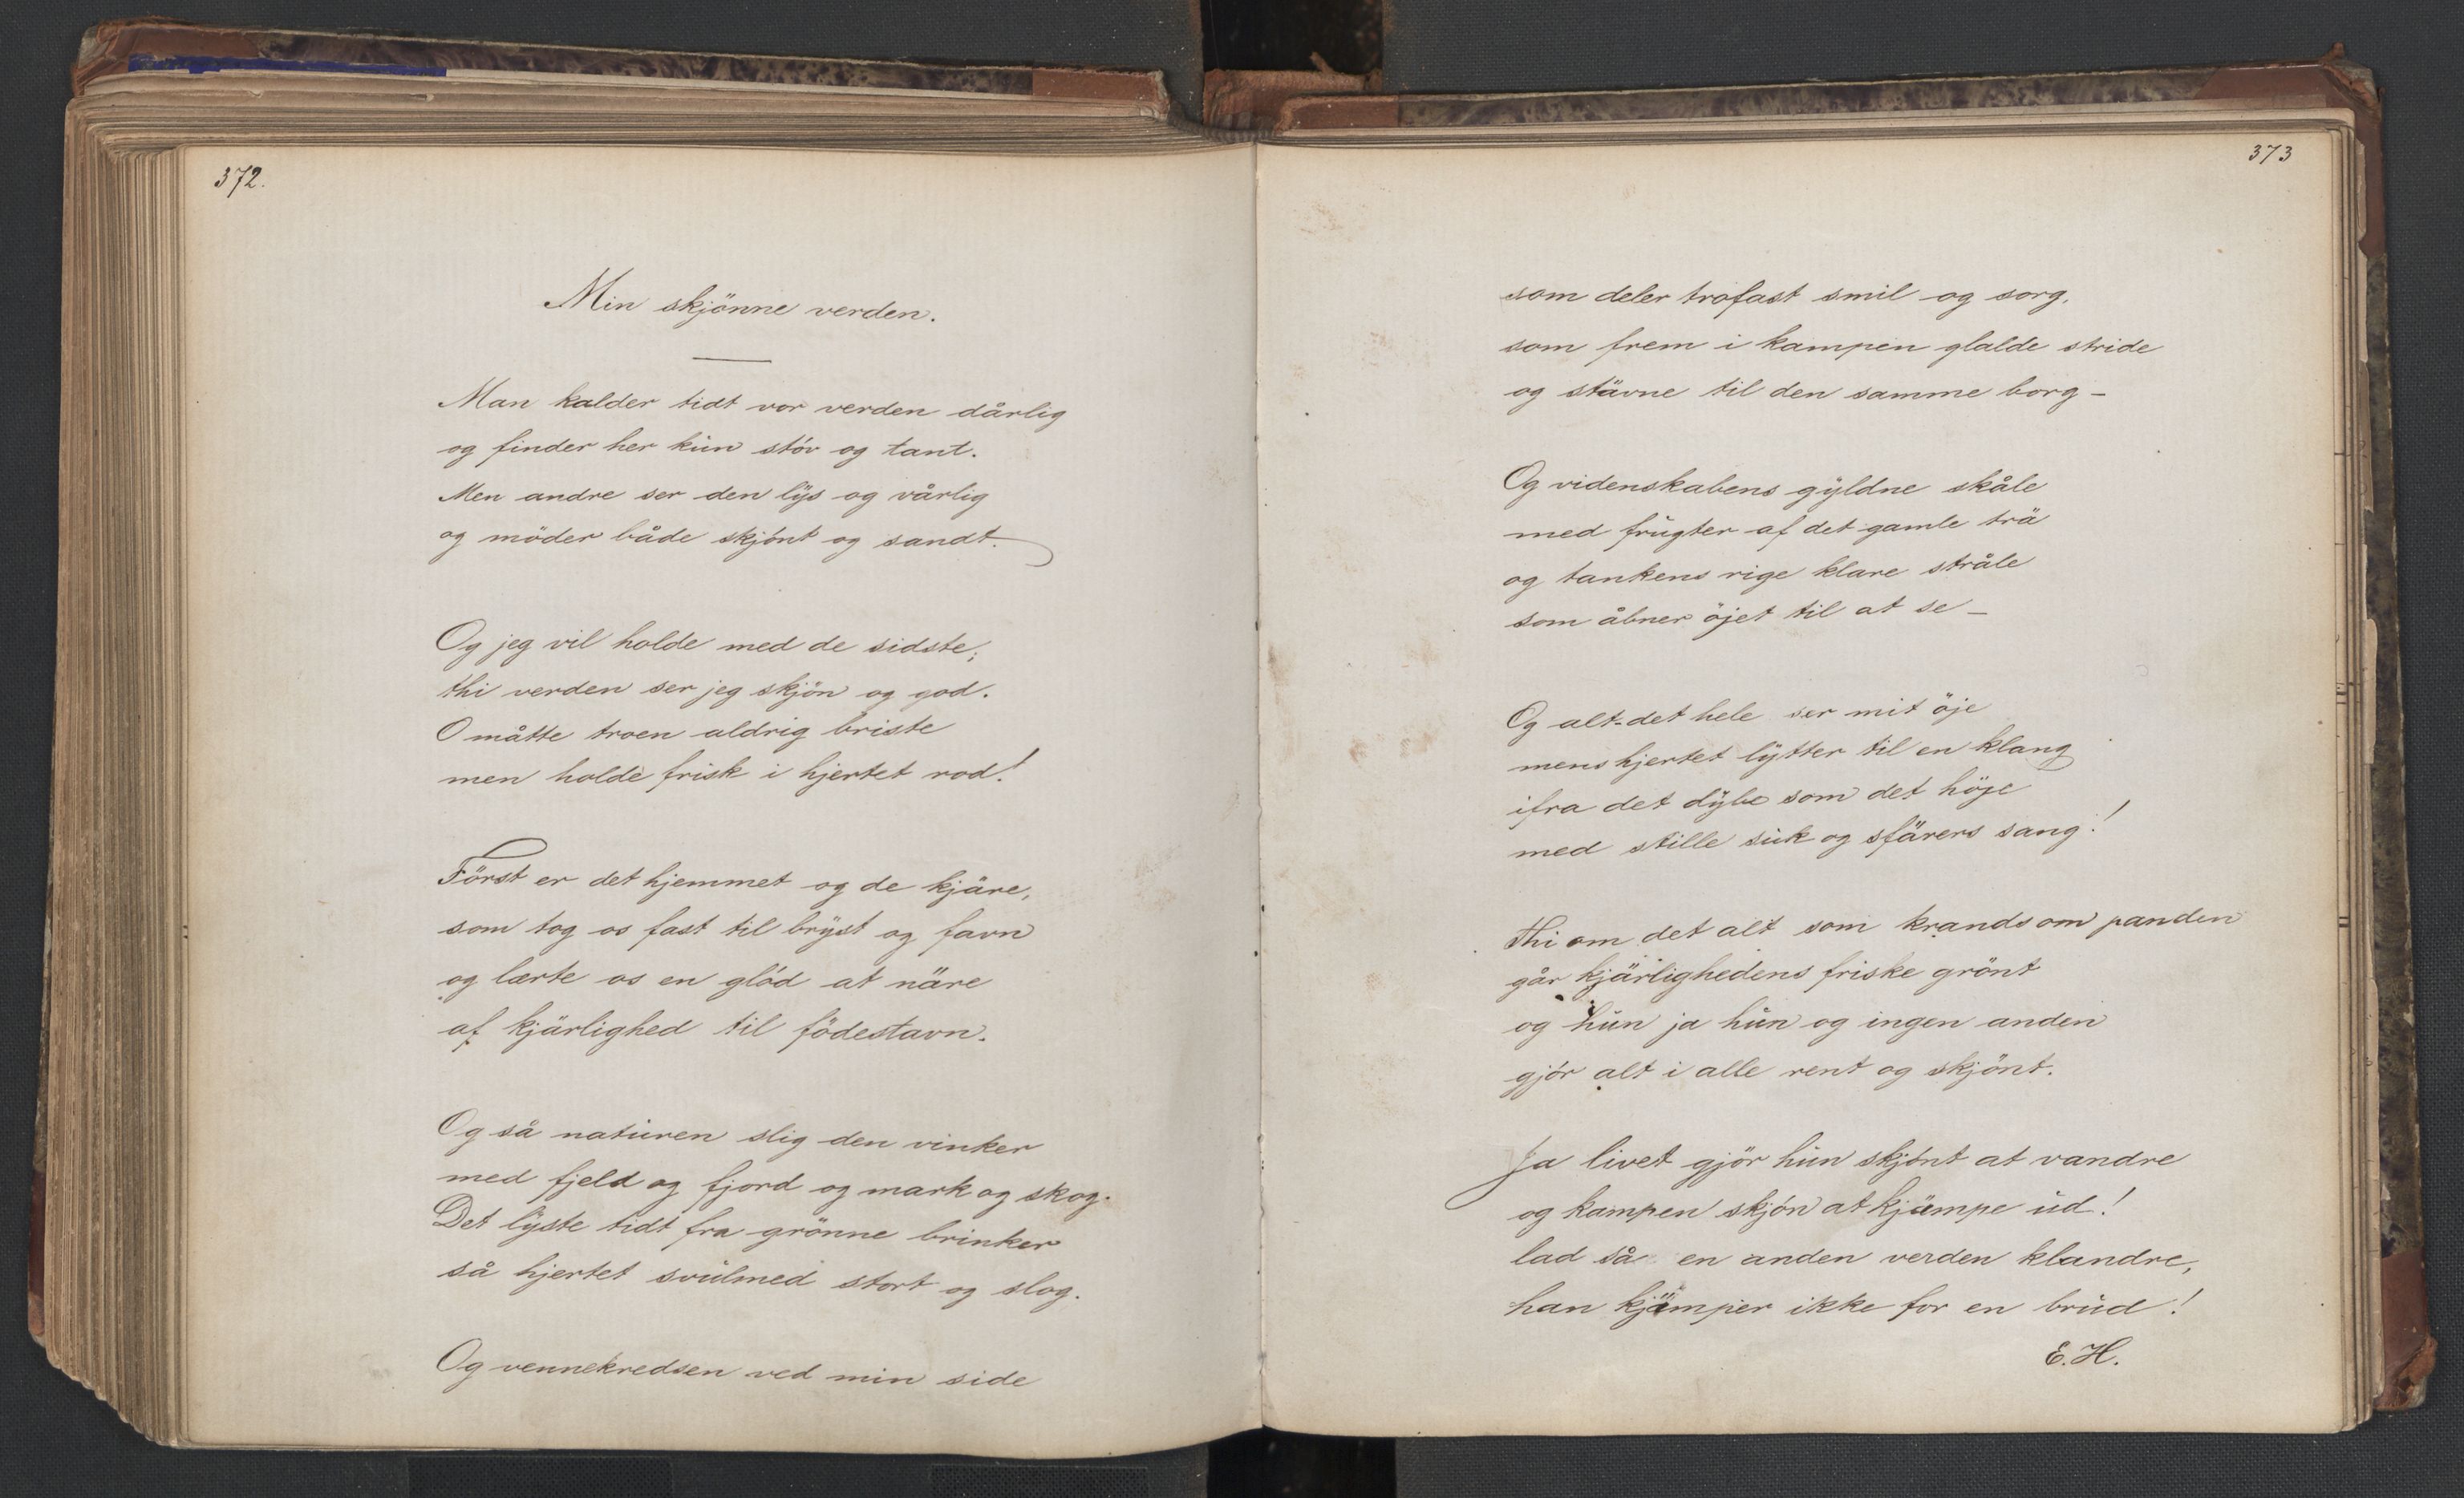 372.
Min skjönne verden.
Man kalder tidt vor verden dårlig
og finder her kun stöv og tant.
Men andre ser den lys og vårlig
og möder både skjönt og sandt.
Og jeg vil holde med de sidste;
thi verden ser jeg skjön og god.
O måtte troen aldrig briste
men holde frisk i hjertet rod!
Först er det hjemmet og de kjäre,
som tog os fast til bryst og favn
og lærte os en glöd at näre
af kjärlighed til födestavn.
Og så naturen slig den vinker
med fjeld og fjord og mark og skog.
Det lyste tidt fra grönne brinker
så hjertet svulmed stort og slog.
Og vennekredsen ved min side
373
som deler trofast smil og sorg,
som frem i kampen glalde stride
og stävne til den samme borg –
Og videnskabens gyldne skåle
med frugter af det gamle trä
og tankens rige klare stråle
som åbner öjet til at se –
Og alt det hele ser mit öje
mens hjertet lytter til en klang
ifra det dybe som det höje
med stille suk og sfärers sang!
Thi om det alt som krands om panden
går kjärlighedens friske grönt
og hun ja hun og ingen anden
gjör alt i alle rent og skjönt.
Ja livet gjör hun skjönt at vandre
og kampen skjön at kjämpe ud!
lad så en anden verden klandre,
han kjämper ikke for en brud!
E. H.